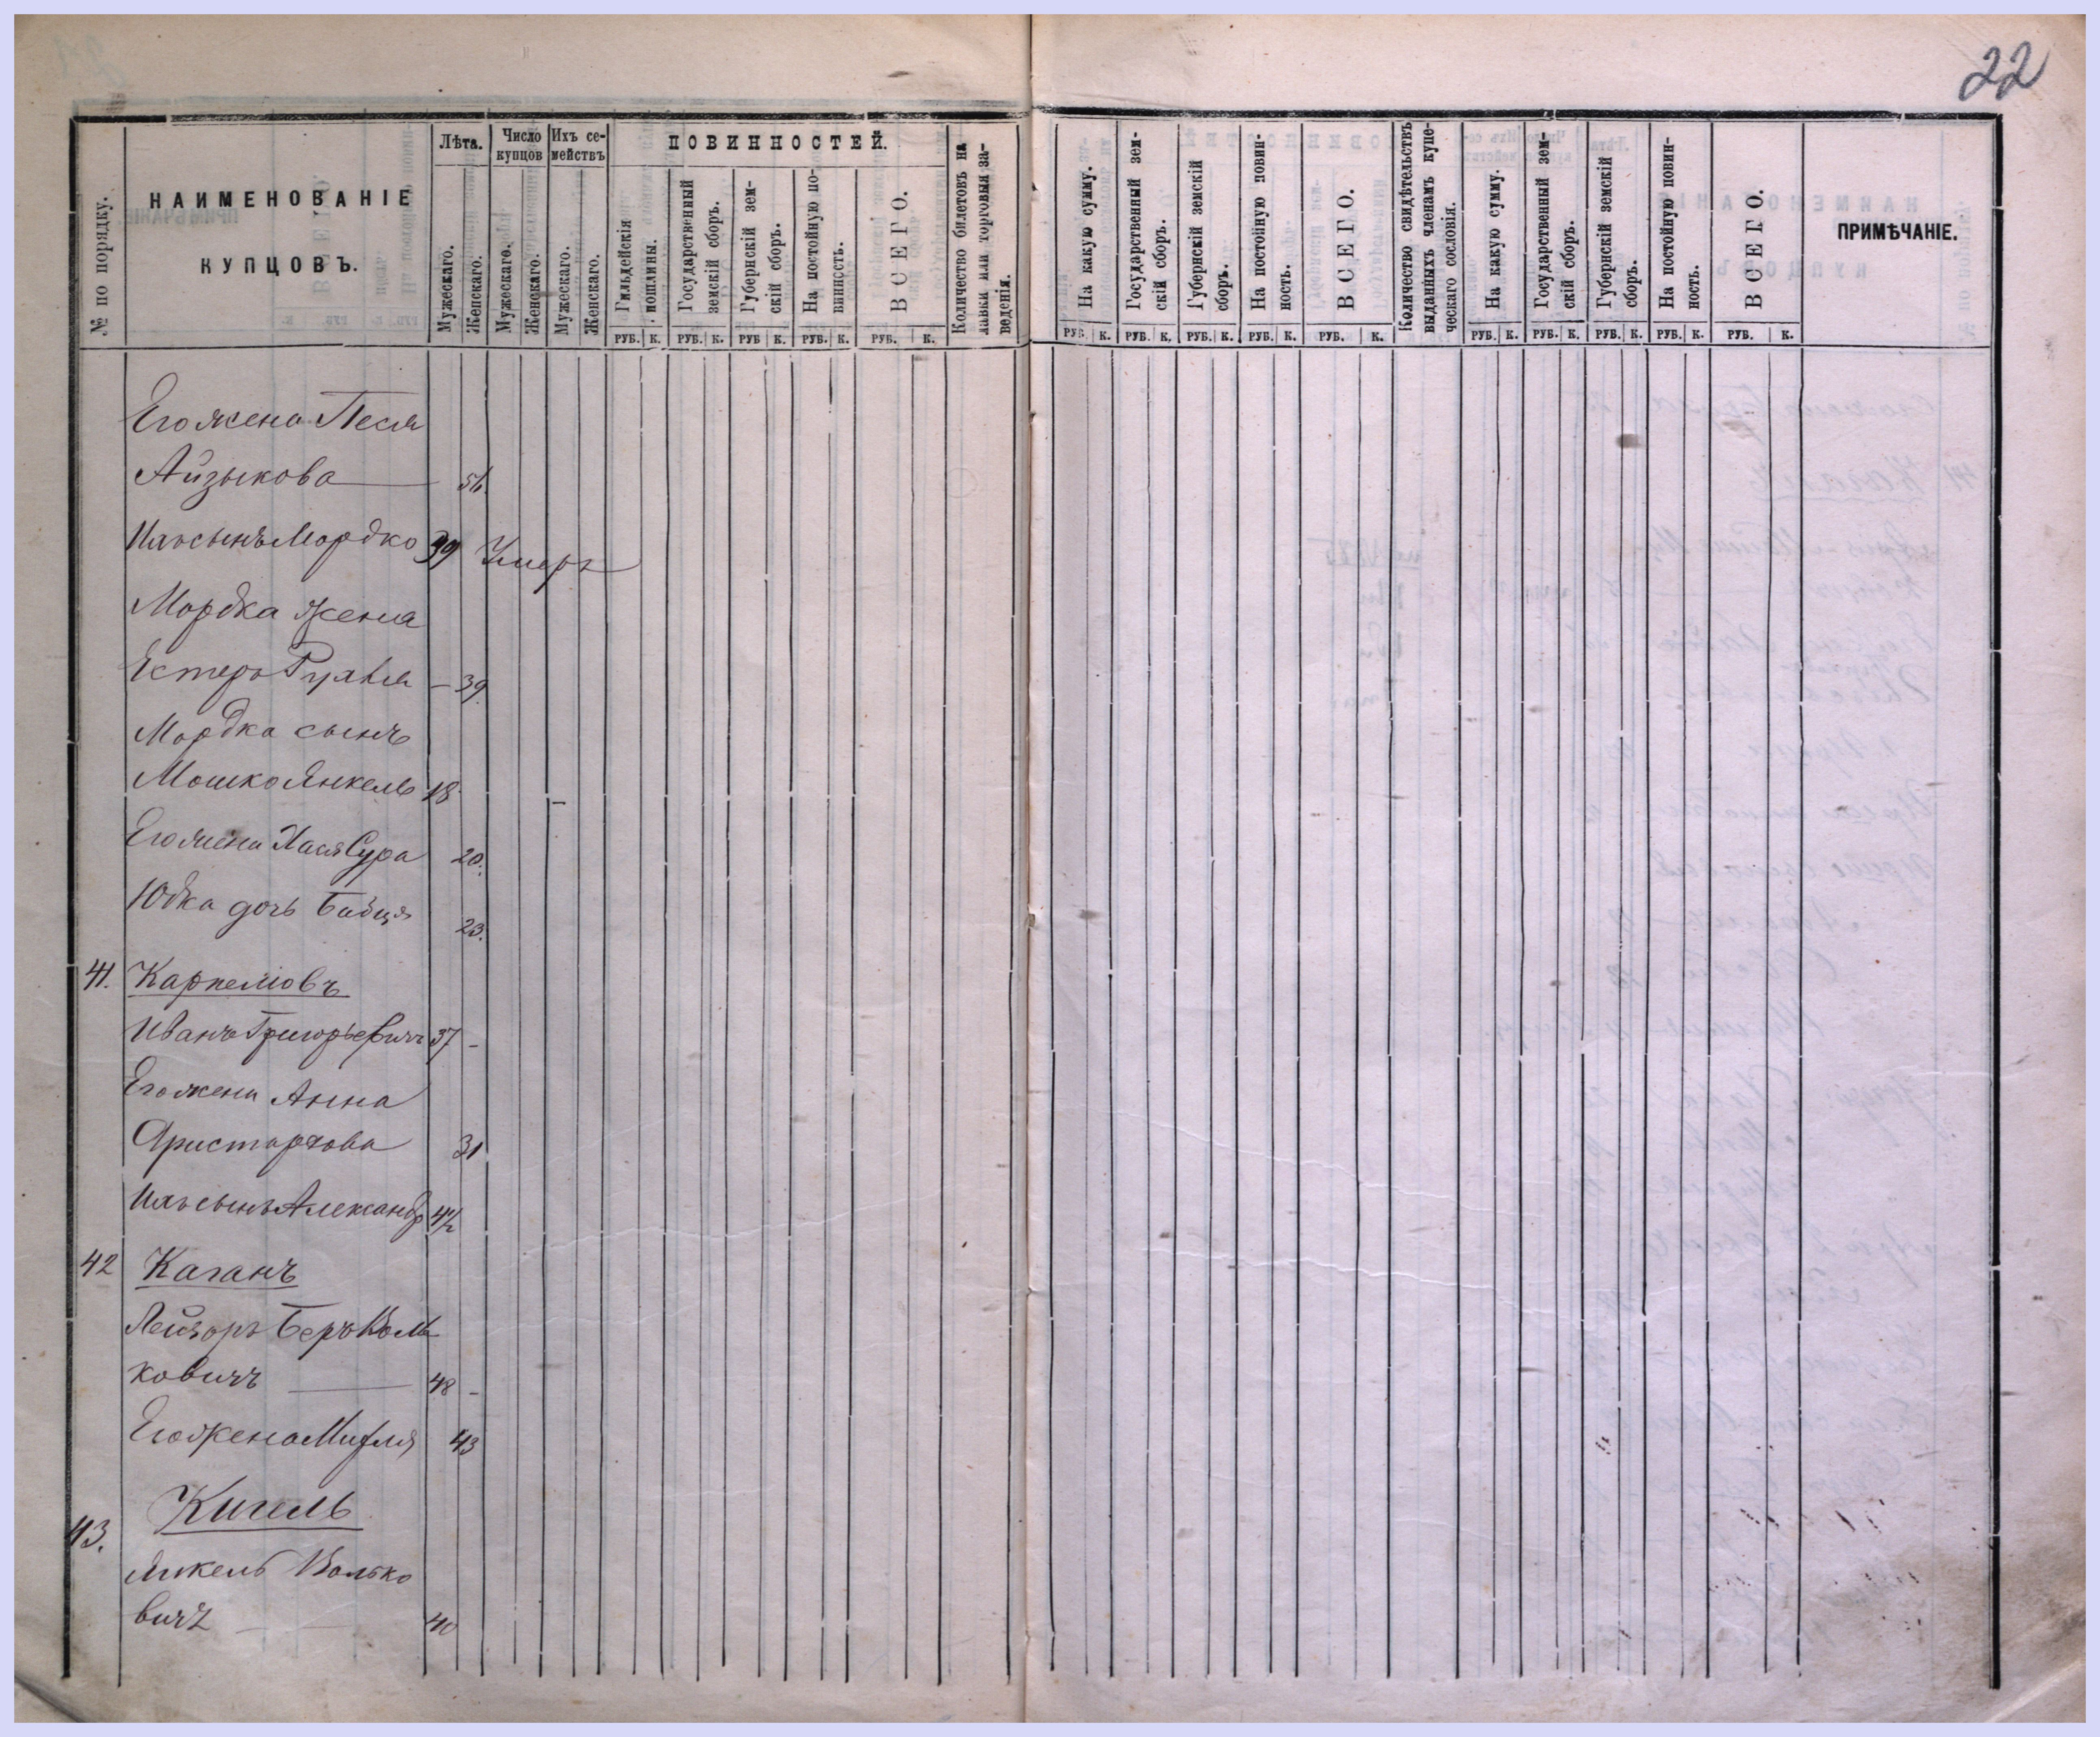 22
№ по порядку.
НАИМЕНОВАНІЕ
КУПЦОВЪ.
Лѣта.
Мужескаго.
Женскаго.
Число
купцов
Мужескаго.
Женскаго.
Ихъ се-
мействъ
Мужескаго.
Женскаго.
ПОВИННОСТЕЙ.
Гильдейскія
пошлины.
Государственный
земскій сборъ.
Губернскій зем-
скій сборъ.
На постойную по-
винность.
ВСЕГО.
Количество билетовъ на
лавки или торговыя за-
веденія.
На какую сумму.
Государственный зем-
скій сборъ.
Губернскій земскій
сборъ.
На постойную повин-
ность.
ВСЕГО.
Количество свидѣтельствъ
выданныхъ членамъ купе-
ческаго сословія.
На какую сумму.
Государственный зем-
скій сборъ.
Губернскій земскій
сборъ.
На постойную повин-
ность.
ВСЕГО.
ПРИМѢЧАНІЕ.
РУБ. К. РУБ. К. РУБ К. РУБ. К. РУБ. К. РУБ. К. РУБ. К. РУБ. К. РУБ. К. РУБ. К. РУБ. К. РУБ. К. РУБ. К. РУБ. К. РУБ. К.
Его жена Песя
Айзыкова
Ихъ сынъ Мордко 39 Умеръ
Мордка жена
Естеръ — 39.
Мордка сынъ
Мошко Янкель 18.
Его жена Хася Сура 20.
Юдка дочь 23.
41. Карпемовъ
Иванъ Григорьевичъ 37 -
Его жена Анна
Аристархова 31
Ихъ сынъ Александр 4 1/2
42 Каганъ
Лейзоръ Беръ Воль
ковичъ — 48 -
Его жена 43
43. Кигель
Янкель Волько
вичъ — 40